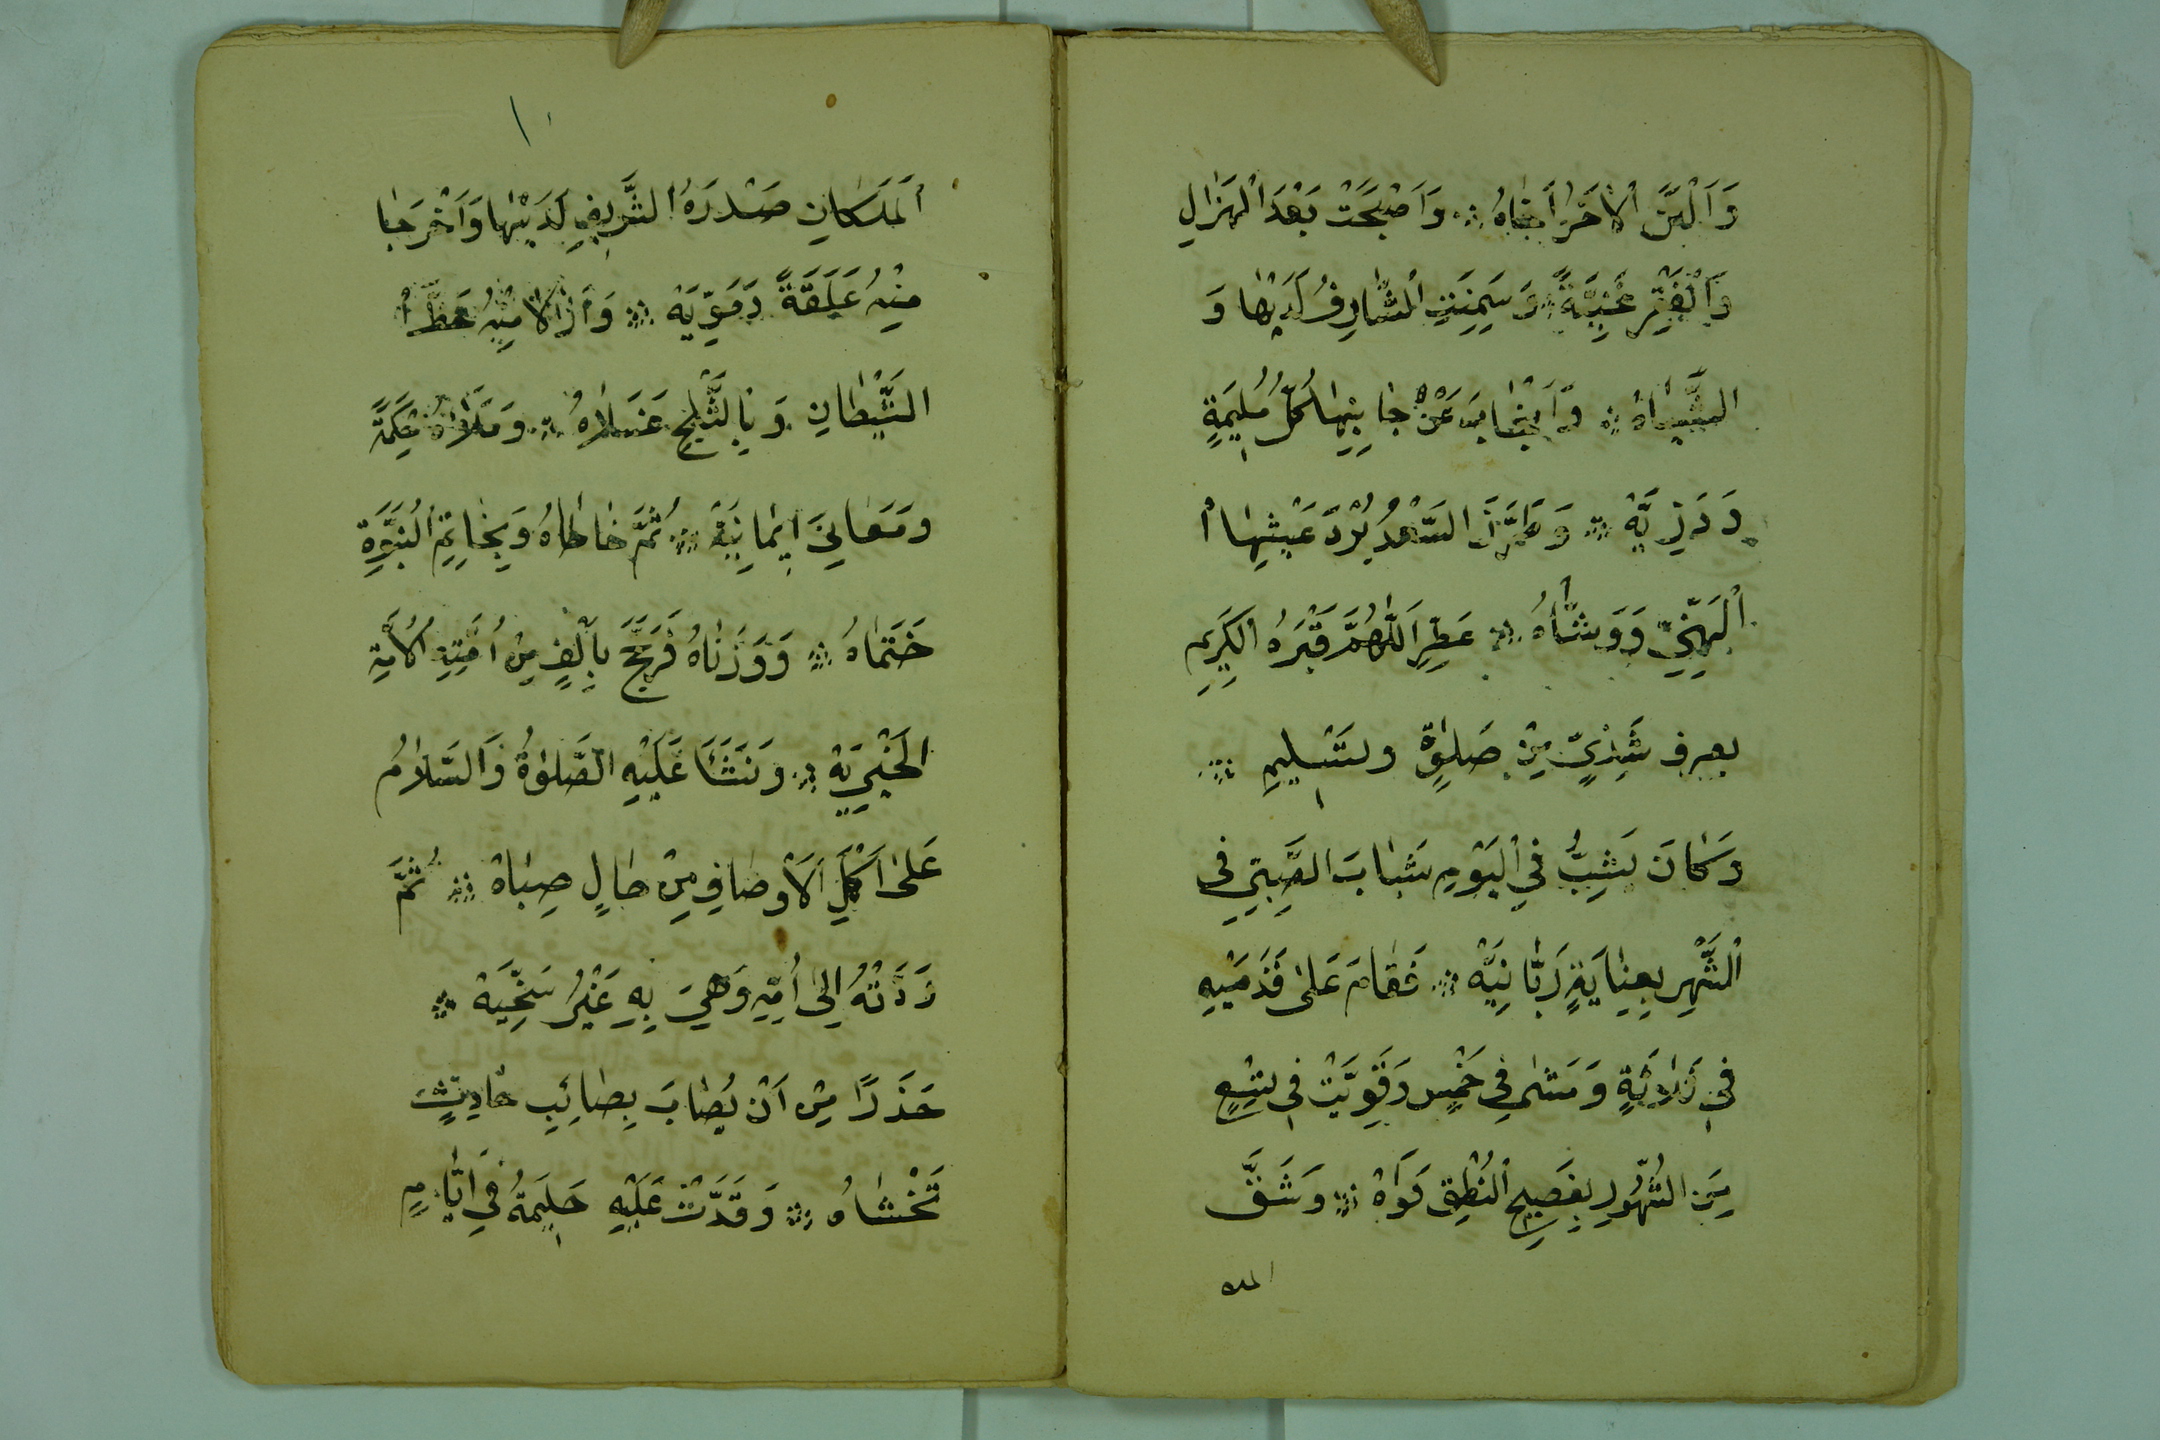 وَاَلْبَنَ الْاٰخَرُ اَخَاهُ ۞ وَاَصْبَحَتْ بَعْدَ الْهَزَالِ
وَالْفَقْرِ غَنِيَّةً ۞ وَسَمِنَتِ الشَّارِفُ لَدَيْهَا وَ
الشِّيَاهُ ۞ وَانْجَابَ عَنْ جَانِبِهَا كُلُّ مُلِمَّةٍ
وَرَزِيَّهْ ۞ وَطَرَّزَ السَّعْدُ بُرْدَ عَيْشِهَا ا
الْهَنِيِّ وَوَشَّاهُ ۞ عَطِّرِ اَللّٰهُمَّ قَبْرَهُ الْكَرِيمِ
بعرف شَذِيٍّ مِنْ صَلٰوةٍ وتَسْلِيمِ ۞
وَكَانَ يَشِبُّ فِي الْيَوْمِ شَبَابَ الصَّبِيِّ فى
الشَّهْرِ بِعِنَايَةٍ رَبَّانِيَّهْ ۞ فَقَامَ عَلٰى قَدَمَيْهِ
فِي ثَلَاثَةٍ وَمَشٰى فِي خَمْسٍ وَقَوِيَتْ فِي تِسْعٍ
مِنَ الشُّهُورِ بِفَصِيحِ النُّطْقِ قُوَاهْ ۞ وَشَقَّ
الملا
١٠
اَلْمَلَكَانِ صَدْرَهُ الشَّرِيفِ لَدَيْهَا وَاَخْرَجَا
مِنْهُ عَلَقَةً دَمَوِيَّهْ ۞ وَاَزَالَا مِنْهُ حَظَّ ا
الشَّيْطَانِ وَبِالثَّلْجِ غَسَلَاهُ ۞ وَمَلَاَهُ حِكْمَةً
وَمَعَانِيَ اِيمَانِيَّهْ ۞ ثُمَّ خَاطَاهُ وَبِخَاتِمِ النُّبُوَّةِ
خَتَمَاهُ ۞ وَوَزَنَاهُ فَرَجَحَ بِاَلْفٍ مِنْ اُمَّتِهِ الْاُمَّةِ
الْخَيْرِيَّهْ ۞ وَنَشَأَ عَلَيْهِ الصَّلٰوةُ وَالسَّلَامُ
عَلٰى اَكْمَلِ الْاَوْصَافِ مِنْ حَالِ صِبَاهْ ۞ ثُمَّ
رَدَّتْهُ اِلٰى اُمِّهِ وَهِيَ بِهِ غَيْرُ سَخِيَّهْ ۞
حَذَرًا مِنْ اَنْ يُصَابَ بِصَائِبِ حَادِثٍ
تَخْشَاهُ ۞ وَقَدِمَتْ عَلَيْهِ حَلِيمَةُ فِي اَيَّامِ